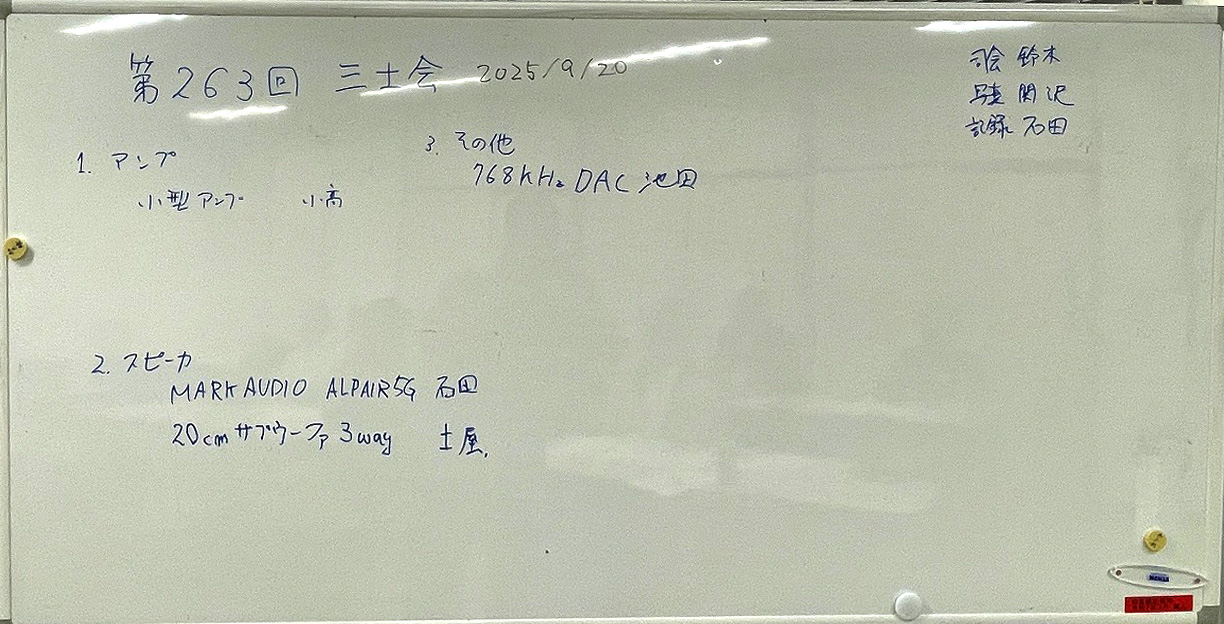 第263回 三士会 2025/9/20
司会 鈴木
関沢
記録 石田
1. アンプ
小型アンプ 小高
3. その他
768kHz DAC 池田
2. スピーカ
MARKAUDIO ALPAIR5G 石田
20cmサブウーファ 3way 土屋.